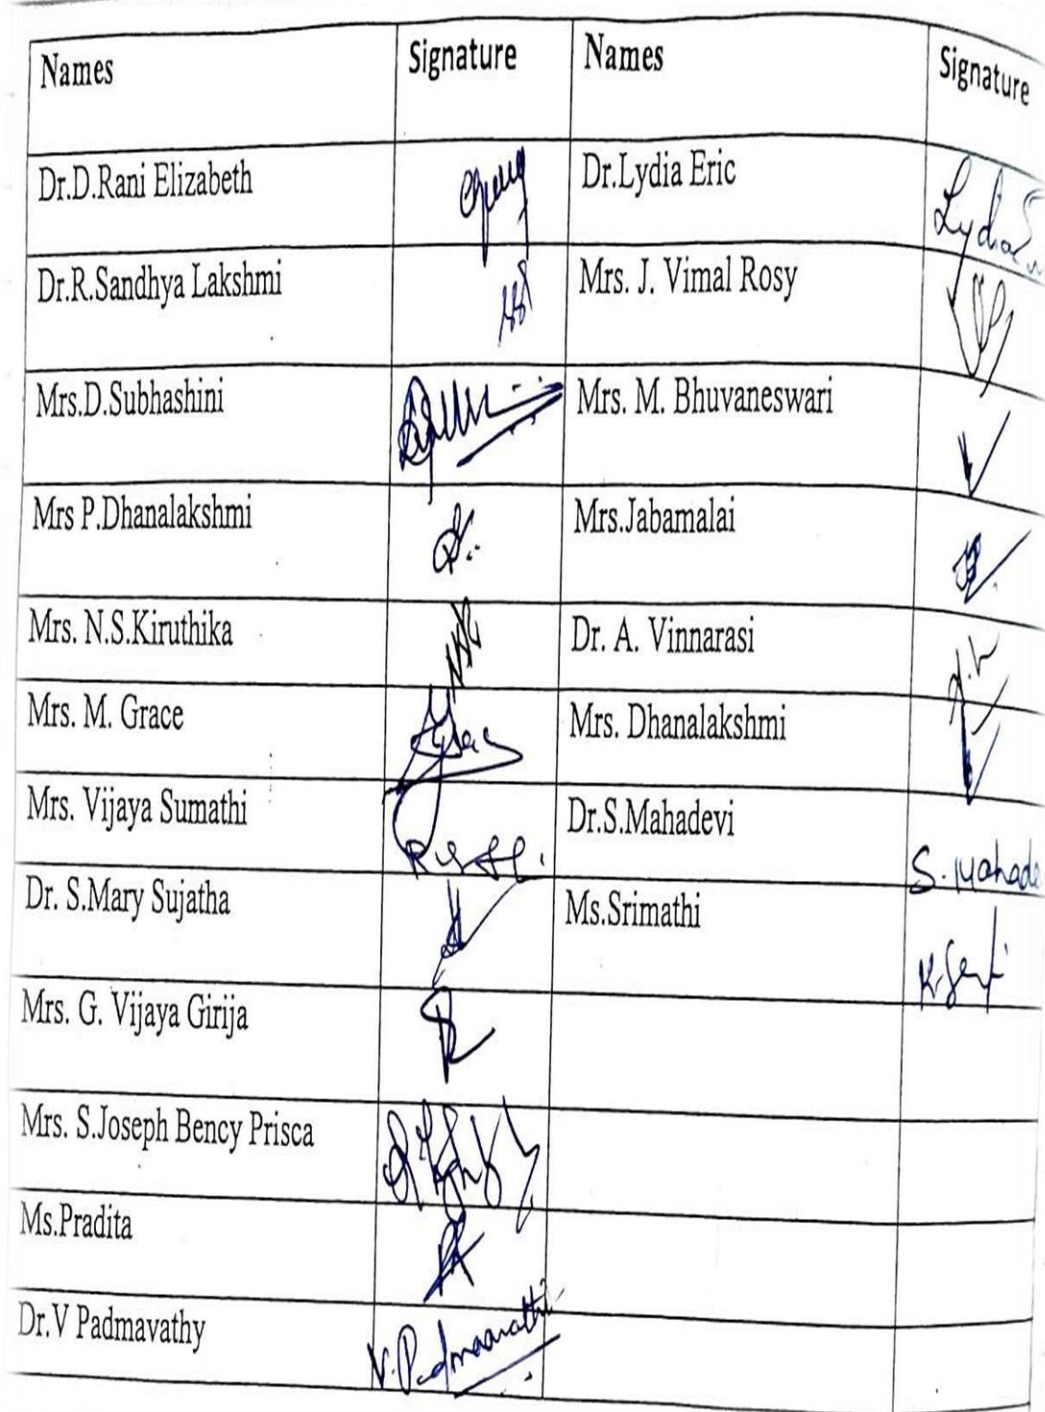 Names Signature Names Signature
Dr.D.Rani Elizabeth Dr.Lydia Eric Lydia
Dr.R.Sandhya Lakshmi Mrs. J. Vimal Rosy
Mrs.D.Subhashini Mrs. M. Bhuvaneswari
Mrs P.Dhanalakshmi Mrs.Jabamalai
Mrs. N.S.Kiruthika Dr. A. Vinnarasi
Mrs. M. Grace Mrs. Dhanalakshmi
Mrs. Vijaya Sumathi Dr.S.Mahadevi S. Mahade
Dr. S.Mary Sujatha Ms.Srimathi
Mrs. G. Vijaya Girija
Mrs. S.Joseph Bency Prisca
Ms.Pradita
Dr.V Padmavathy V. Padmaavathi